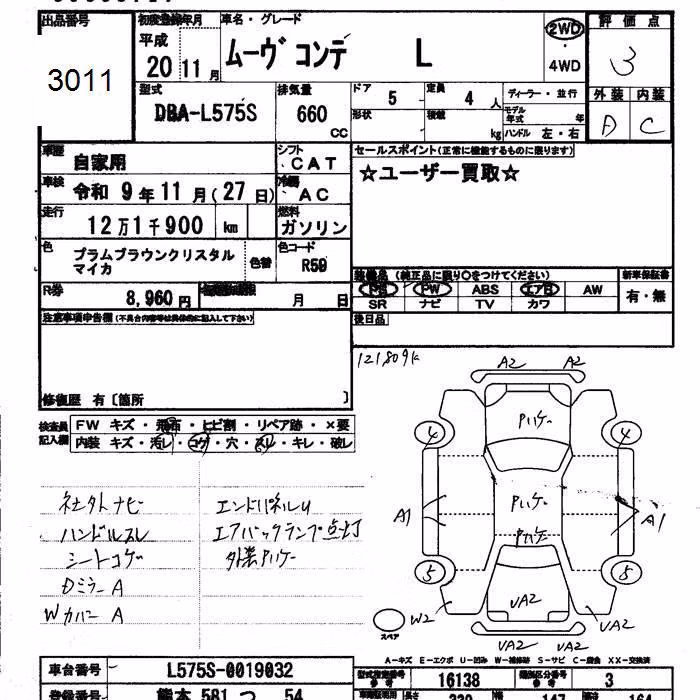 出品番号
3011
初度登録年月
平成
20 11 月
車名・グレード
ムーヴ コンテ L
2WD
・
4WD
評価点
3
外装 内装
A C
型式
DBA-L575S
排気量
660
CC
ドア
5
定員
4 人
形状
積載
kg
ディーラー・並行
モデル年式 年
ハンドル 左・右
車歴
自家用
シフト
CAT
車検
令和 9 年 11 月 (27 日)
冷房
AC
走行
12 万 1 千 900 km
燃料
ガソリン
色
プラムブラウンクリスタル
マイカ
色替
色コード
R59
R券
8,960 円
月 日
セールスポイント(正常に機能するものに限ります)
☆ユーザー買取☆
装備品 (純正品に限り○をつけてください)
PS PW ABS エアB AW
SR ナビ TV カワ
新車保証書
有・無
後日品
注意事項申告欄(不具合内容等は具体的に記入して下さい)
修復歴 有〔箇所 〕
検査員
記入欄
FW キズ・飛石・ヒビ割・リペア跡・×要
内装 キズ・汚レ・コゲ・穴・スレ・キレ・破レ
121809K
A2 A2
Pハゲ
4 4
A1
Pハゲ
A1
Pハゲ
5 5
UA2
W2
UA2
UA2 UA2
スペア
社外ナビ
ハンドルスレ
シートコゲ
Dミラー A
Wカバー A
エンドパネルU
エアバックランプ点灯
外装Pハゲ
A-キズ E-エクボ U-凹み W-補修跡 S-サビ C-腐食 XX-交換済
車台番号
L575S-0019032
型式指定番号
参考
16138
類別区分番号
参考
3
登録番号
熊本 581 つ 54
339 147 164